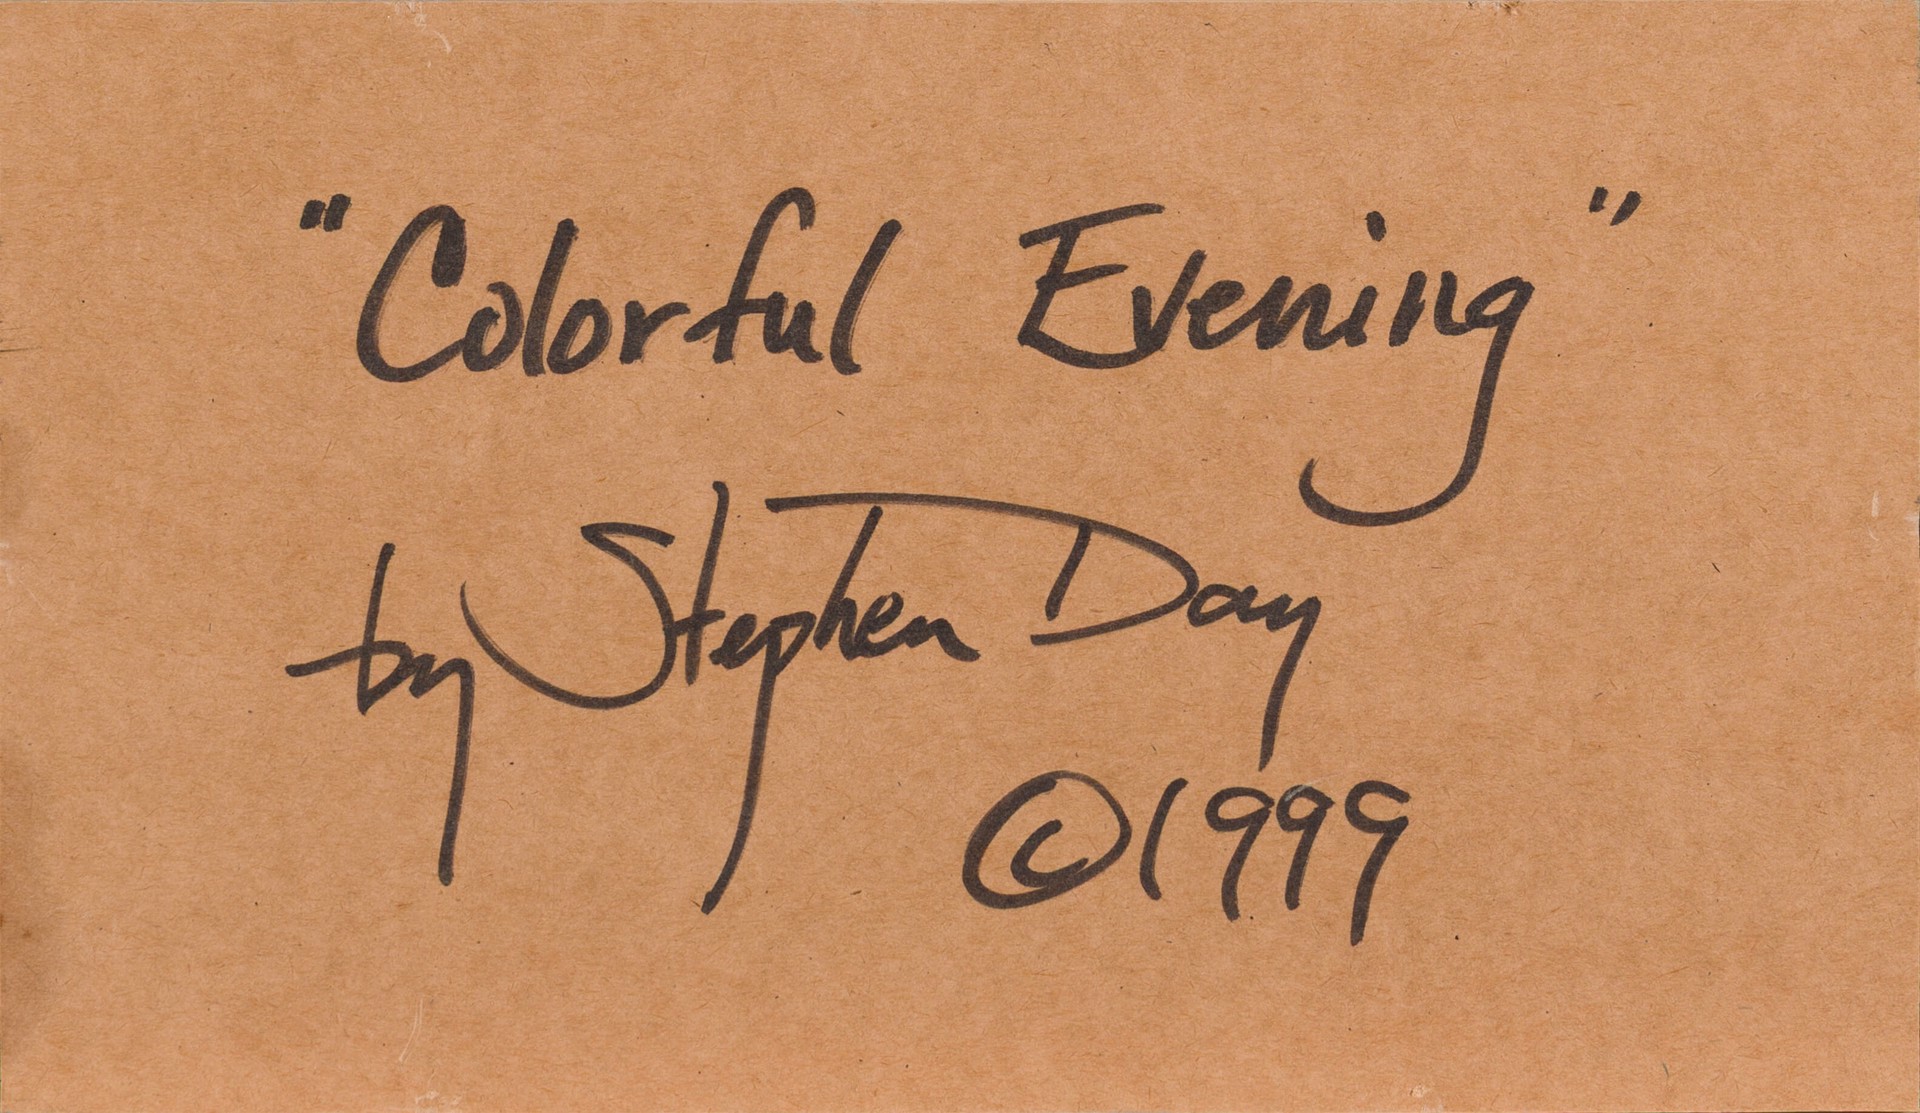 "Colorful Evening"
by Stephen Day
©1999